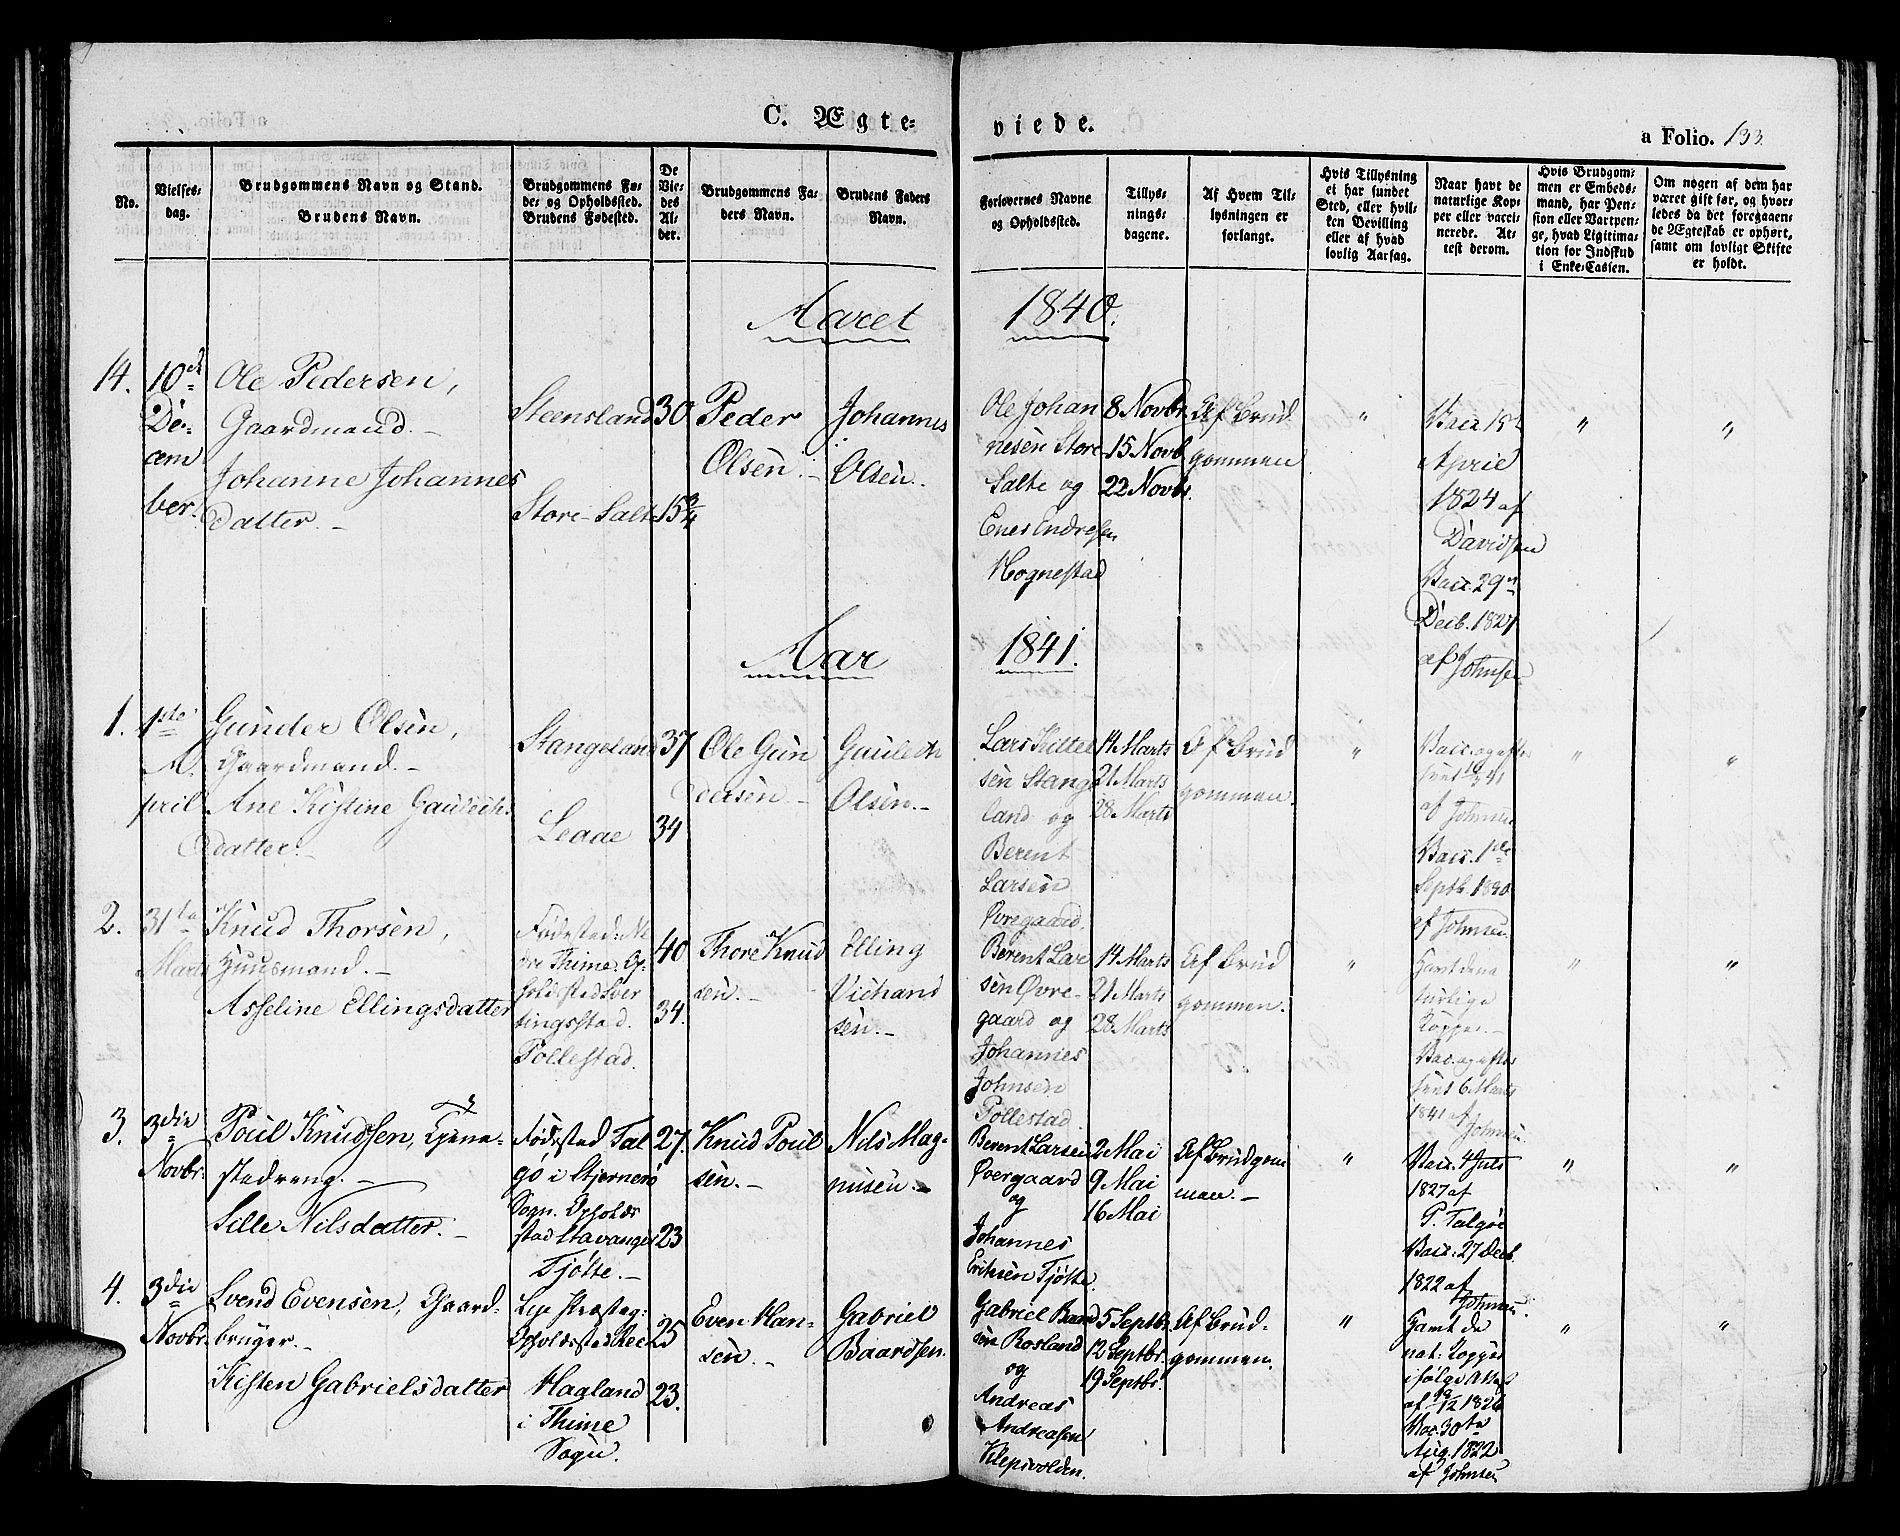 C. Ægte=
viede.
a Folio. 133.
No.
Vielses-
dag.
Brudgommens Navn og Stand.
Brudens Navn.
Brudgommens Fø-
de- og Opholdssted.
Brudens Fødested.
De
Vie-
des
Al-
der.
Brudgommens Fa-
ders Navn.
Brudens Faders
Navn.
Forlovernes Navne
og Opholdssted.
Tillys-
nings-
dagene.
Af Hvem Til-
lysningen er
forlangt.
Hvis Tillysning
ei har fundet
Sted, eller hvil-
ken Bevilling
eller af hvad
lovlig Aarsag.
Naar havt de
naturlige Kop-
per eller vacci-
nerede. At-
test derom.
Hvis Brudgom-
men er Embeds-
mand, har Pen-
sion eller Vartpen-
ge, hvad Ligitima-
tion for Indskud
i Enke-Cassen.
Om nogen af dem har
været gift før, og hvor-
ledes da det foregaaen-
de Ægteskab er ophørt,
samt om lovligt Skifte
er holdt.
Aaret 1840.
14.
10de
De-
cem
ber.
Ole Pedersen,
Gaardmand.-
Johanne Johannes
datter.-
Steensland
Store-Salte
30
15¾
Peder
Olsen.-
Johannes
Olsen.-
Ole Johan
nesen Store
Salte og
Enes Endresen
Hognestad
8 Novbr.
15 Novb.
22 Novbr.
Af Brud
gommen
"
Vacc. 15
April
1824 af
Davidsen
Vacc. 29
Decb. 1827
af Johnsen
"
"
Aar 1841.
1.
1ste
A-
pril
Gunder Olsen,
Gaardmand.-
Ane Kistine Gauleths
datter.-
Stangeland
Leaae
37
34
Ole Gun
dersen.-
Gauleth
Olsen.-
Lars Kittel
sen Stange
land og
Berent
Larsen
Øvregaard.
14 Marts
21 Marts
28 Marts
Af Brud
gommen.
"
Vacc. og efter
af Johnsen
Vacc. 1ste
Septb. 1840
af Johnsen
"
"
2.
31te
Marts
Knud Thorsen,
Huusmand.-
Asseline Ellingsdatter
Fødested: Ne
dre Thime. Op-
holdssted Sver
tingsstad.
Pollestad.
40
34.
Thore Knud
sen.-
Elling
Vichand
sen.-
Berent Lar
sen Øvre-
gaard og
Johannes
Johnsen
Pollestad.
14 Marts
21 Marts
28 Marts
Af Brud
gommen.
"
Havt de na
turlige
Kopper.-
Vac. og efter
seet 6 Marts
1841 af
Johnsen
"
"
3.
3die
Novbr.
Poul Knudsen, Tjene-
stedreng.-
Sille Nilsdatter.-
Fødested Tal
gø i Stjernerø
Sogn. Opholds
stad Stavanger
Tjøtte.-
27.
23
Knud Poul
sen.-
Nils Mag-
nusen.-
Berent Larsen
Øvergaard
og
Johannes
Eriksen Tjøtte
2 Mai
9 Mai
16 Mai
Af Brudgom
men.-
"
Vacc. 4 Juli
1827 af
P. Talgøe
Vacc. 27 Decb.
1822 af
Johnsen
"
"
4.
3die
Novbr.
Svend Evensen, Gaard-
bruger.-
Kisten Gabrielsdatter
Lye Præsteg:
Opholdssted Ree
Hagland
i Thime
Sogn.
25
23.
Even Han-
sen.-
Gabriel
Baardsen.
Gabriel Baard
sen Rosland
og
Andreas
Andreasen
Klepsvolden.
5 Septbr.
12 Septbr.
19 Septbr.
Af Brud-
gommen.
"
Havt de
nat: Kopper
ifølge Attest
af 19/12 1826
Vac. 30te
Aug. 1822
af Johnsen
"
"